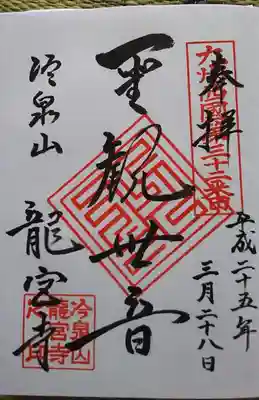 奉拝
九州西国第三十二番
平成二十五年
三月二十八日
聖観世音
冷泉山
龍宮寺
冷泉山
龍宮寺